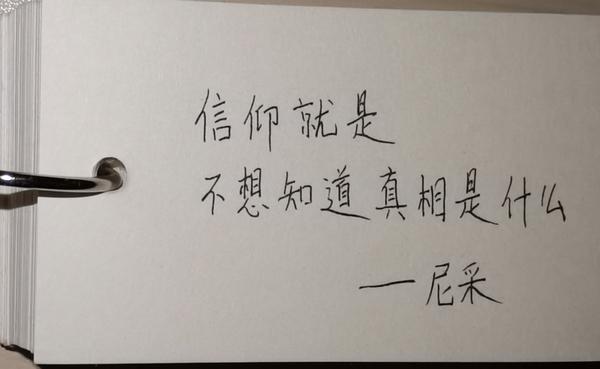 信仰就是
不想知道真相是什么
——尼采